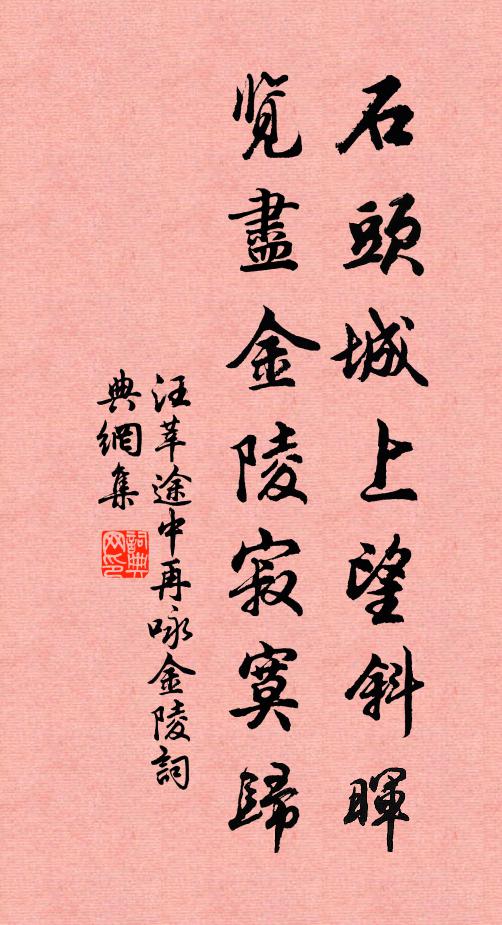 石頭城上望斜暉
覽盡金陵寂寞歸
汪莘途中再咏金陵詞
典網集
詞典
网印